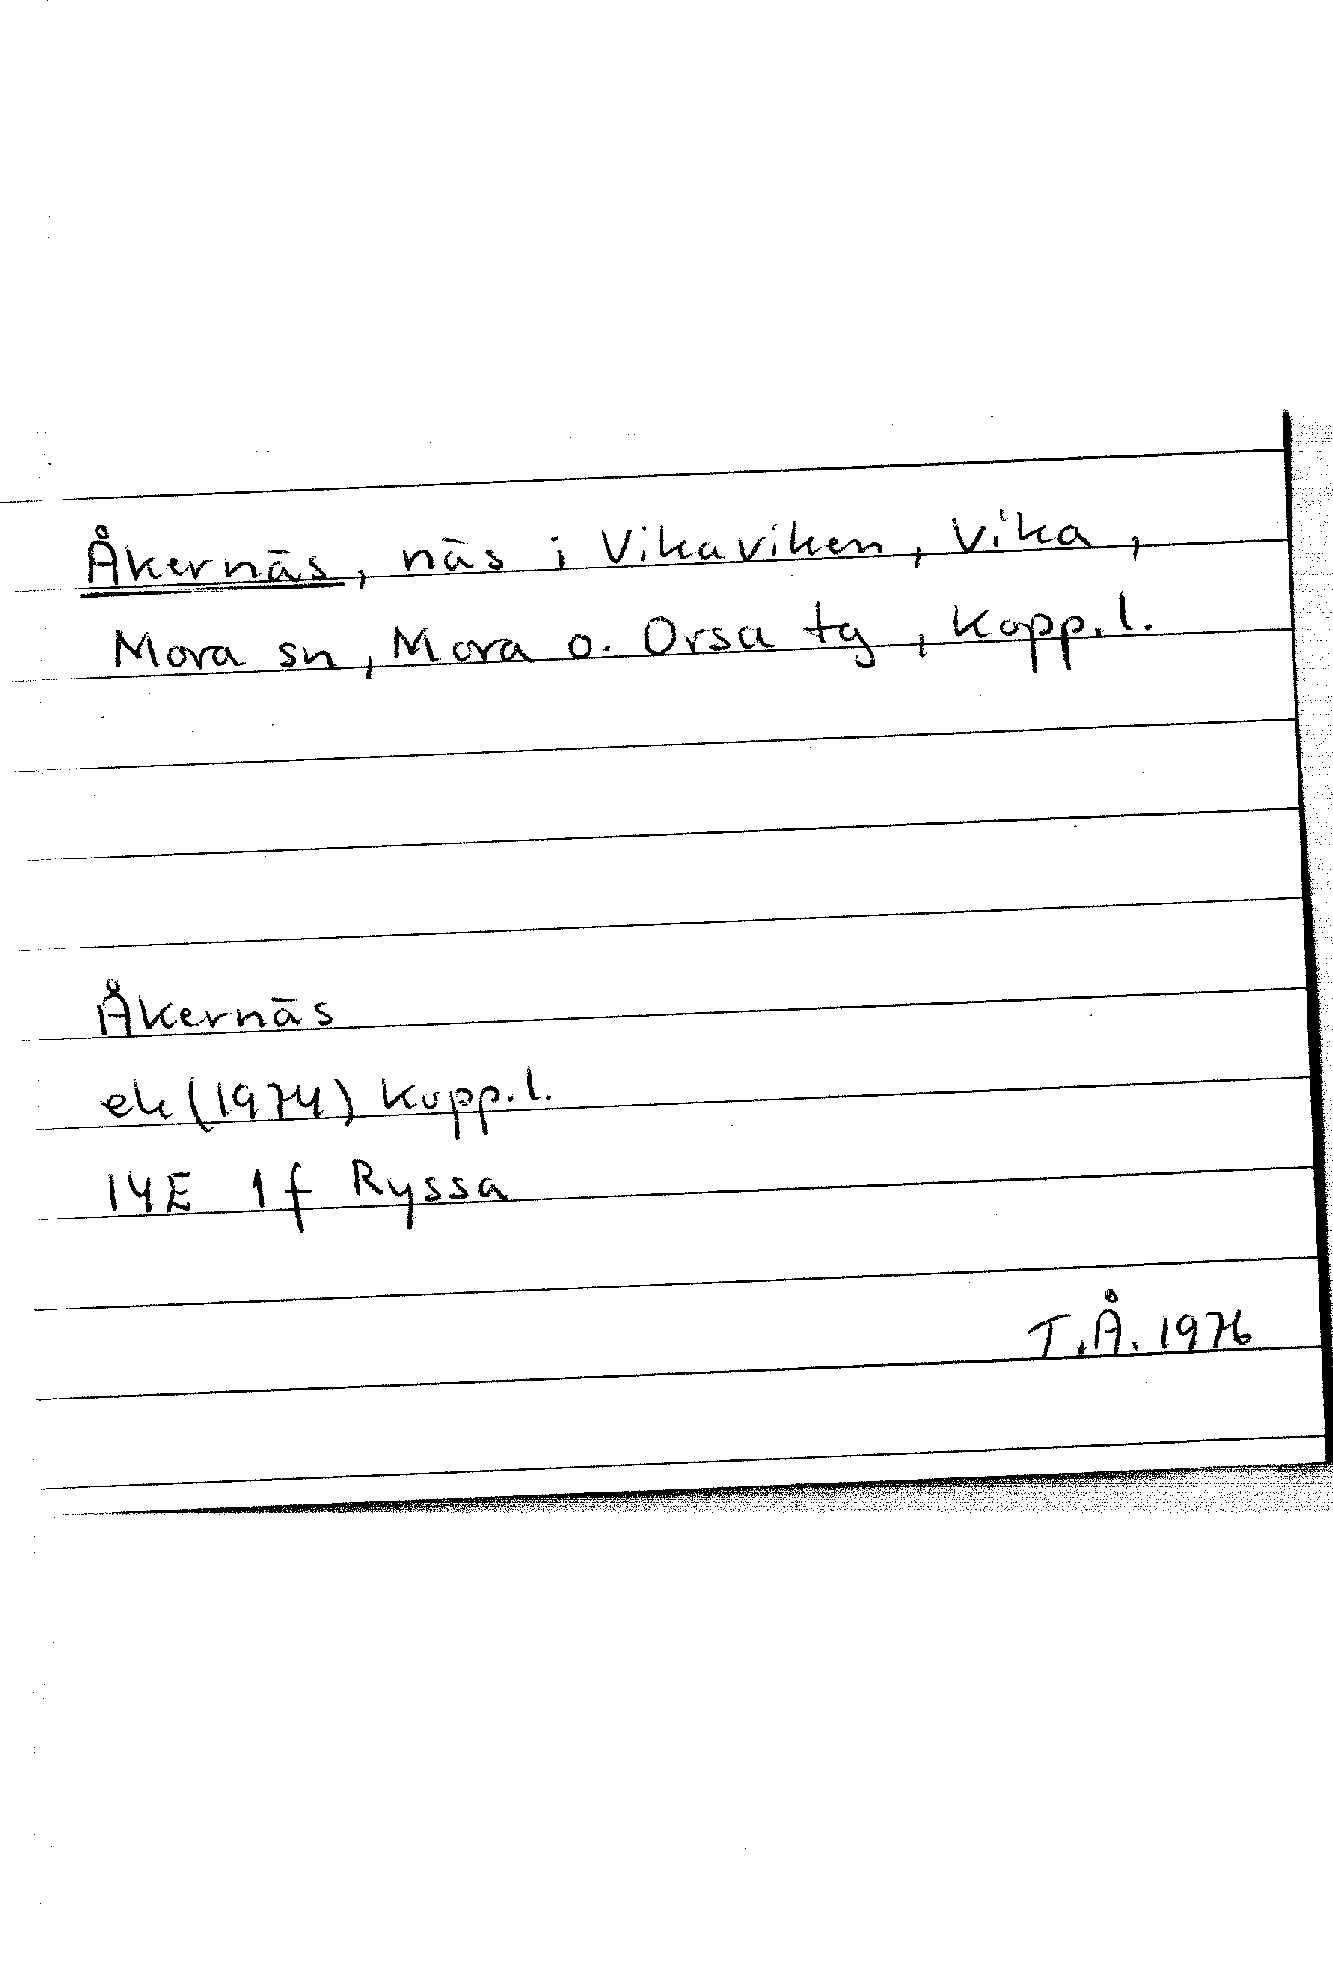 Åkernäs, näs i Vikaviken, Vika,
Mora sn, Mora o. Orsa tg, Kopp.l.
Åkernäs
ek (1974) Kopp.l.
14E 1f Ryssa
T.Å. 1976